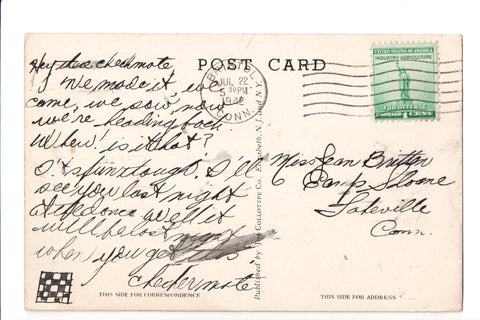 Hey there checkmate
I've made it, we
came, we saw, now
we're heading back
Whew! is it hot?
It's fun though. I'll
see you last night
at least once well it
will be last night
when you get this
checkermate
THIS SIDE FOR CORRESPONDENCE
POST CARD
JUL 22
5 PM
1942
CONN.
Published by The Collotype Co., Elizabeth, N. J. and N. Y.
UNITED STATES OF AMERICA
INDUSTRY AGRICULTURE
FOR DEFENSE
1 CENT
Miss Jean Britten
Camp Sloane
Lakeville
Conn.
THIS SIDE FOR ADDRESS